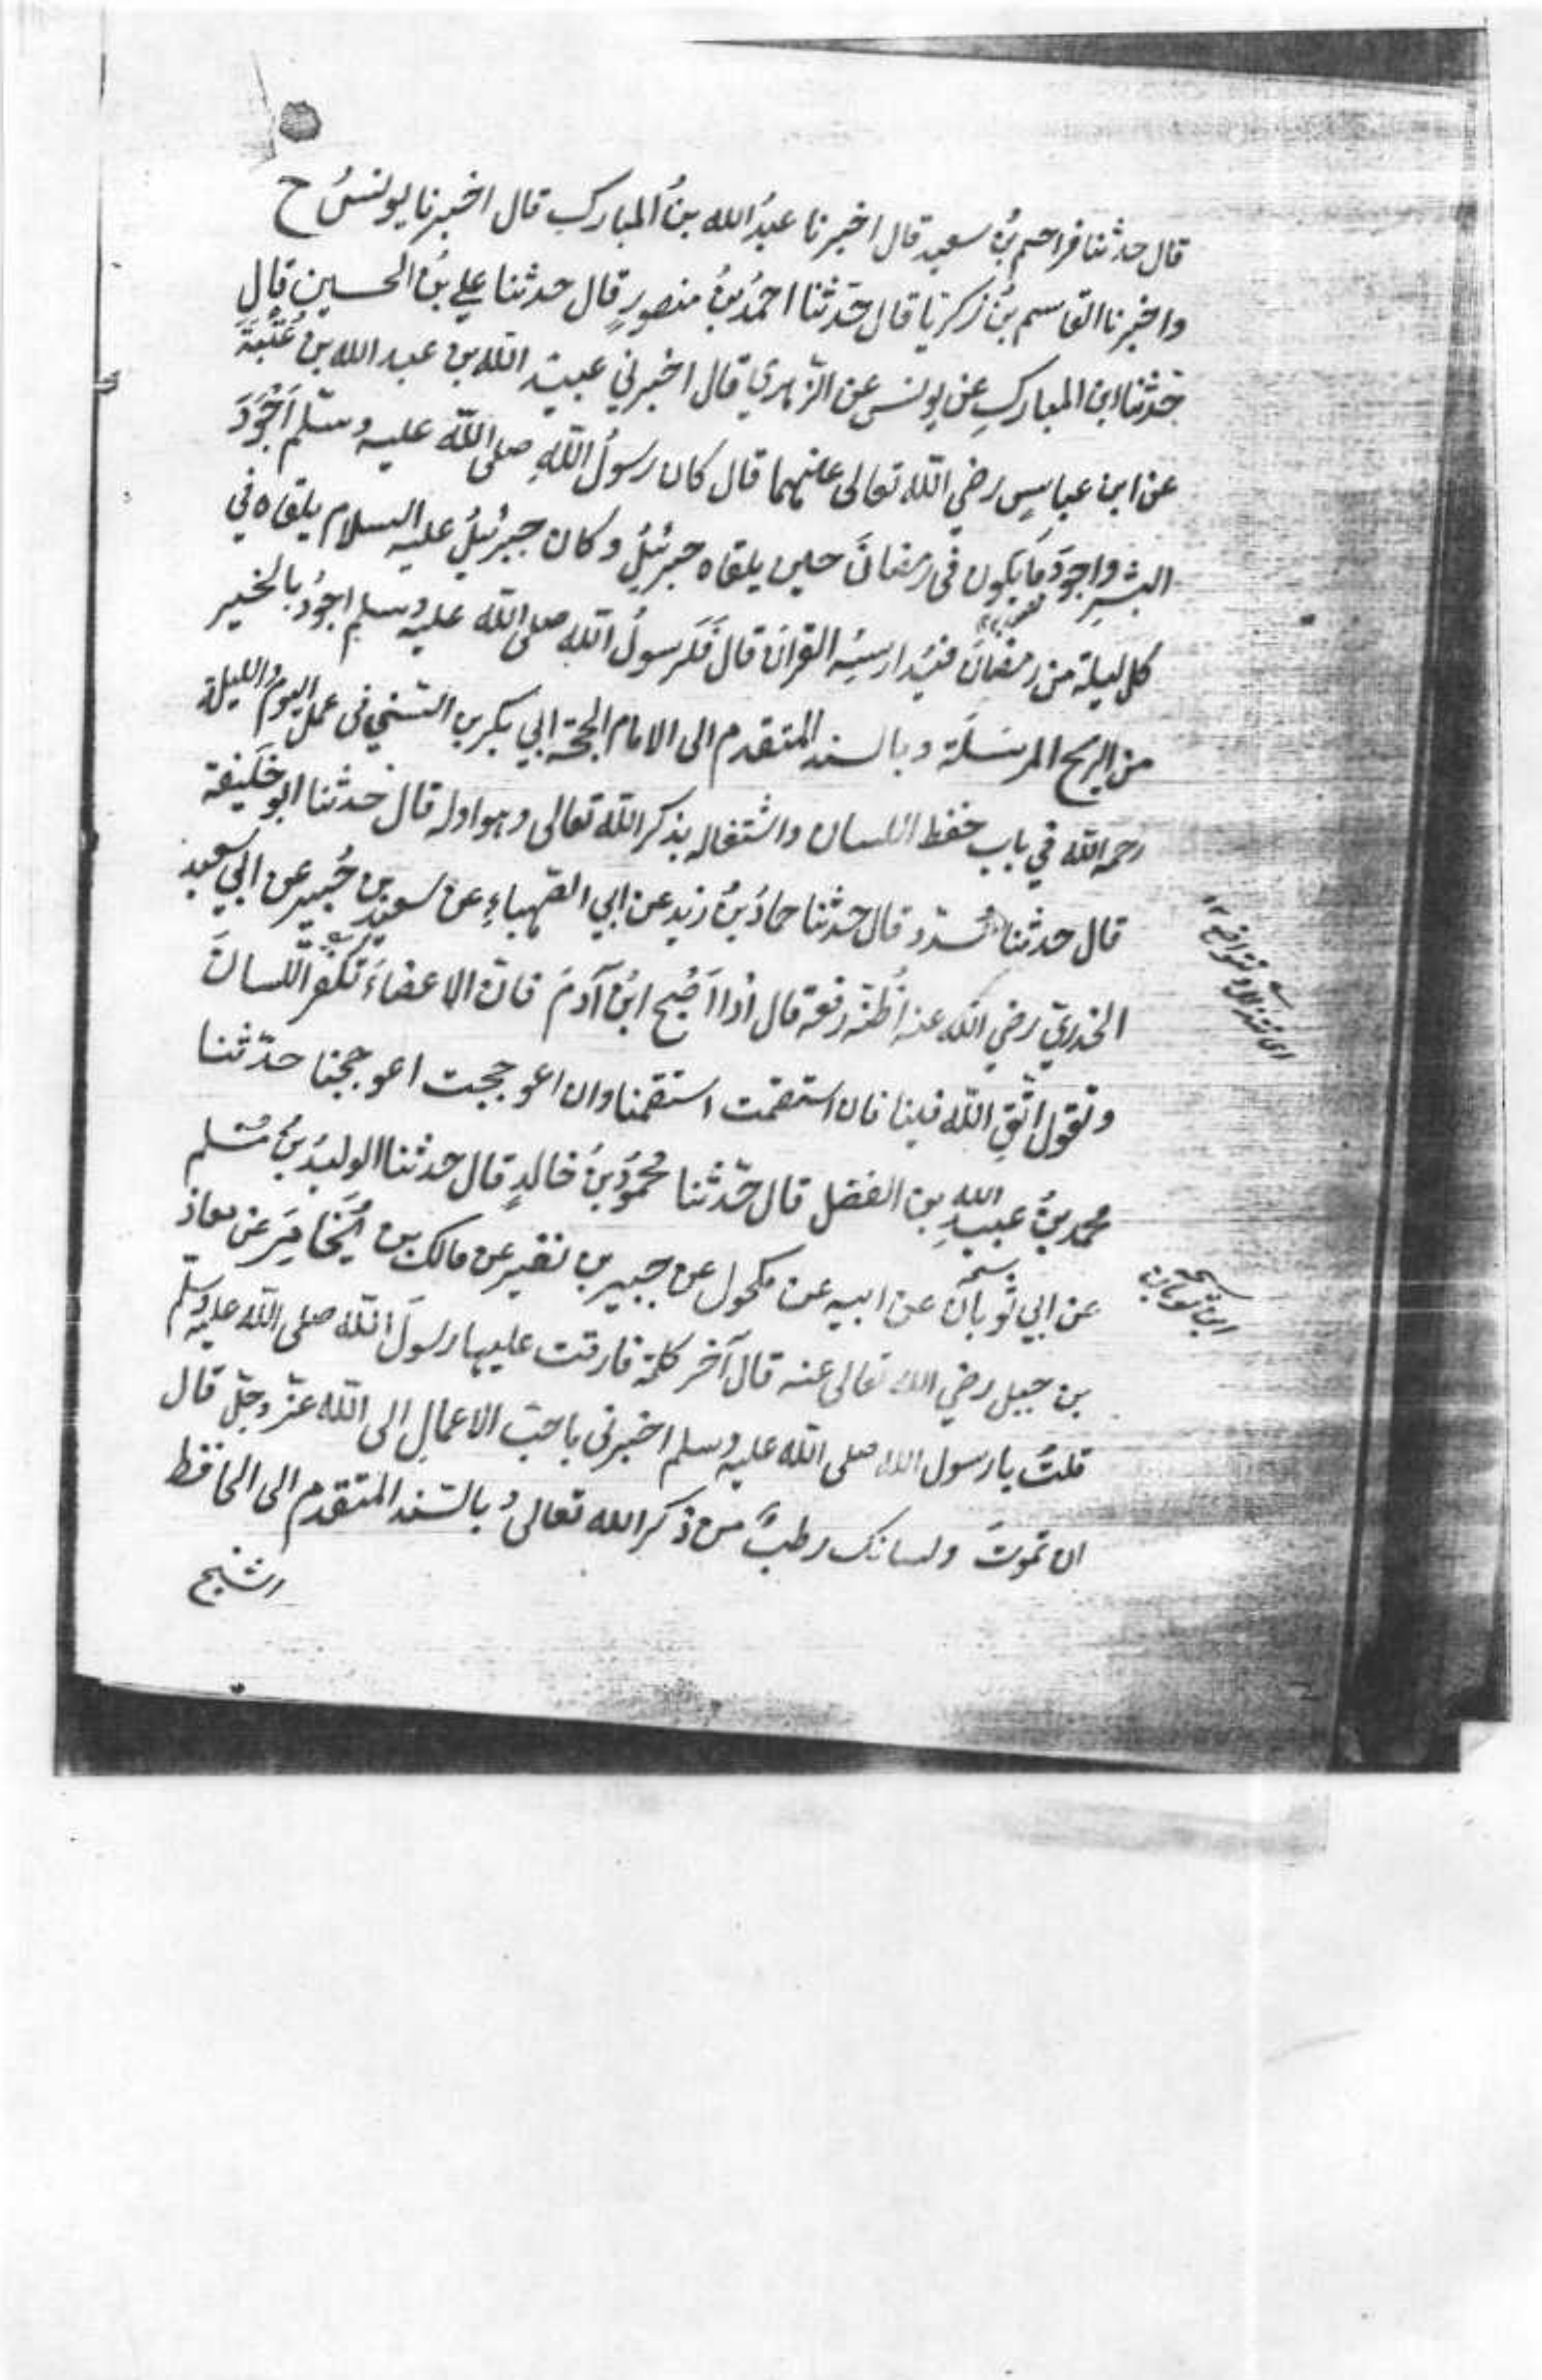 قال حدثنا مزاحم بنُ سعيد قال اخبرنا عبدُ الله بنُ المبارك قال اخبرنا يونسُ ح
واخبرنا القاسم بنُ زكريا قال حدّثنا احمدُ بنُ منصورٍ قال حدثنا علي بنُ الحسين قال
حدّثنا ابن المباركِ عن يونس عن الزّهري قال اخبرني عبيد الله بن عبد الله بن عُتْبَةَ
عن ابن عباسٍ رضي الله تعالى عنهما قال كان رسولُ اللهِ صلى الله عليه وسلّم اَجْوَدَ
البشرِ واجودَ مَا يكون في رمضانَ حين يلقاه جبرئيلُ وكان جبرئيلُ عليه السلام يلقاه في
كل ليلة من رمضانَ فيُدارسُه القرانَ قال فَلَرسولُ الله صلى الله عليه وسلم اجودُ بالخير
من الريح المرسَلَة وبالسند المتقدم الى الامام الحجّة ابي بكر بن السّنّي في عمل اليوم والليلة
رحمه الله في باب حفظ اللسان واشتغاله بذكر الله تعالى وهو اوله قال حدثنا ابو خَليفة
قال حدثنا مُسدّد قال حدثنا حمادُ بنُ زيد عن ابي الصّهباءِ عن سعيد بن جُبير عن ابي سعيد
الخدريّ رضي الله عنه اَظُنّه رفعه قال اذا اَصْبح ابنُ آدمَ فانّ الاعضاءَ تُكفّر اللّسانَ
وتقول اتّقِ الله فينا فان استقمت استقمنا وان اعوججت اعوججنا حدّثنا
محمد بنُ عبيدِ الله بن الفضل قال حدّثنا محمودُ بنُ خالدٍ قال حدثنا الوليدُ بنُ مسلم
عن ابي ثوبان عن ابيه عن مكحول عن جبير بن نفير عن مالك بن يُخَامِرَ عن معاذ
بن جبل رضي الله تعالى عنه قال آخر كلمة فارقت عليها رسولَ الله صلى الله عليه وسلّم
قلتُ يا رسول الله صلى الله عليه وسلم اخبرني باحبّ الاعمالِ الى الله عزّ وجلّ قال
ان تموتَ ولسانك رطبٌ من ذكر الله تعالى وبالسّند المتقدم الى الحافظ
الشيخ
نسخة
ابن ثوبان